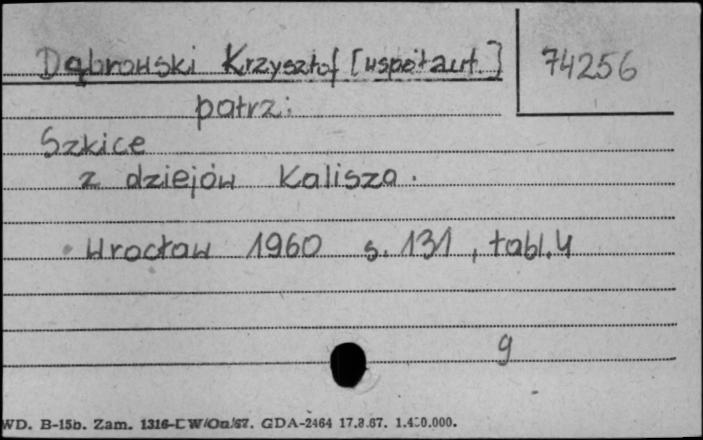 Dąbrowski Krzysztof [współaut.]
74256
patrz:
Szkice
z dziejów Kalisza.
Wrocław 1960 s. 131, tabl. 4
g
WD. B-15b. Zam. GDA-2464 17.8.67.